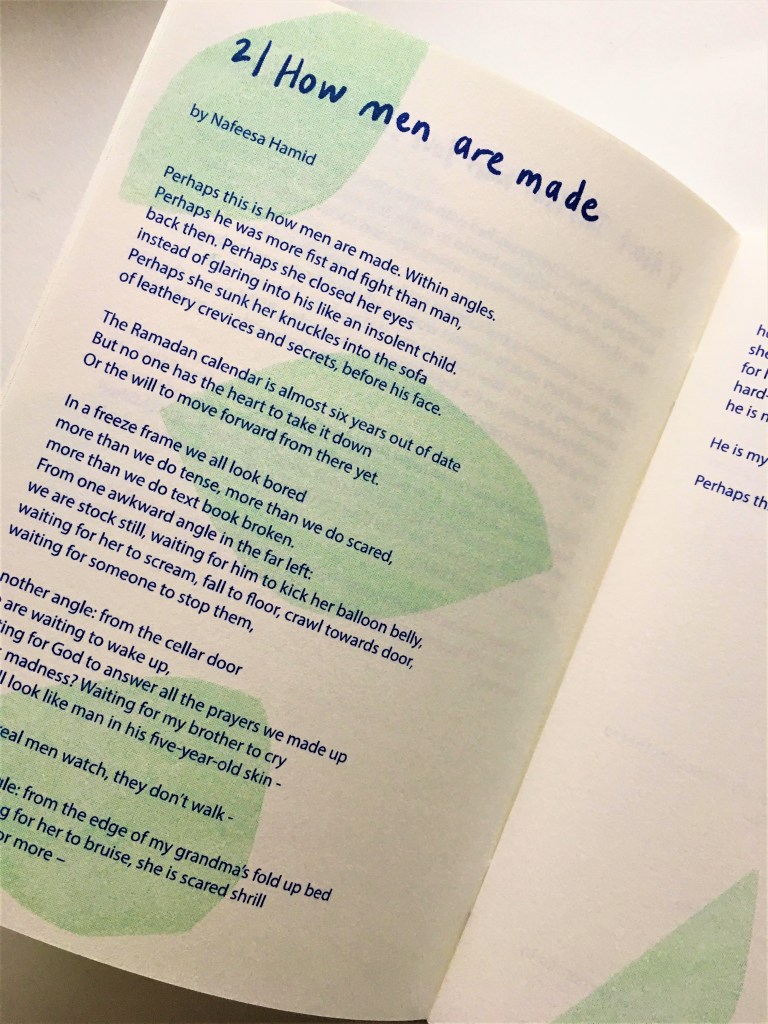 2/ How men are made
by Nafeesa Hamid
Perhaps this is how men are made. Within angles.
Perhaps he was more fist and fight than man,
back then. Perhaps she closed her eyes
instead of glaring into his like an insolent child.
Perhaps she sunk her knuckles into the sofa
of leathery crevices and secrets, before his face.
The Ramadan calendar is almost six years out of date
But no one has the heart to take it down
Or the will to move forward from there yet.
In a freeze frame we all look bored
more than we do tense, more than we do scared,
more than we do text book broken.
From one awkward angle in the far left:
we are stock still, waiting for him to kick her balloon belly,
waiting for her to scream, fall to floor, crawl towards door,
waiting for someone to stop them,
nother angle: from the cellar door
are waiting to wake up,
ting for God to answer all the prayers we made up
madness? Waiting for my brother to cry
ll look like man in his five-year-old skin -
real men watch, they don't walk -
gle: from the edge of my grandma's fold up bed
g for her to bruise, she is scared shrill
or more –
she
for
hard-
he is
He is my
Perhaps